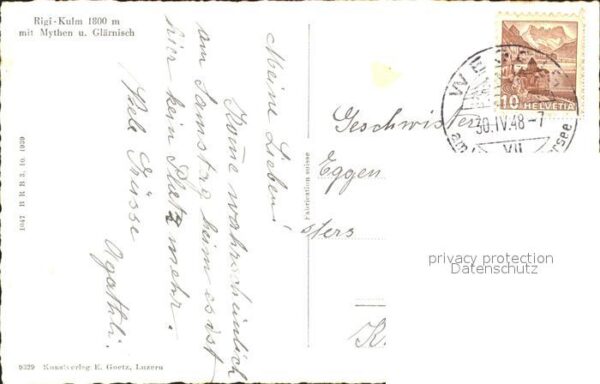 Rigi-Kulm 1800 m
mit Mythen u. Glärnisch
Meine Lieben!
Komme wahrscheinlich
am Samstag heim es ist
hier kein Platz mehr.
Viele Grüsse
Agathli.
1047 B R B 3. 10. 1939
Fabrication suisse
9329 Kunstverlag E. Goetz, Luzern
10 HELVETIA
WEGGIS
30.IV.48-7
VII
am
ersee
Geschwister
Eggen
sters
K.
privacy protection
Datenschutz